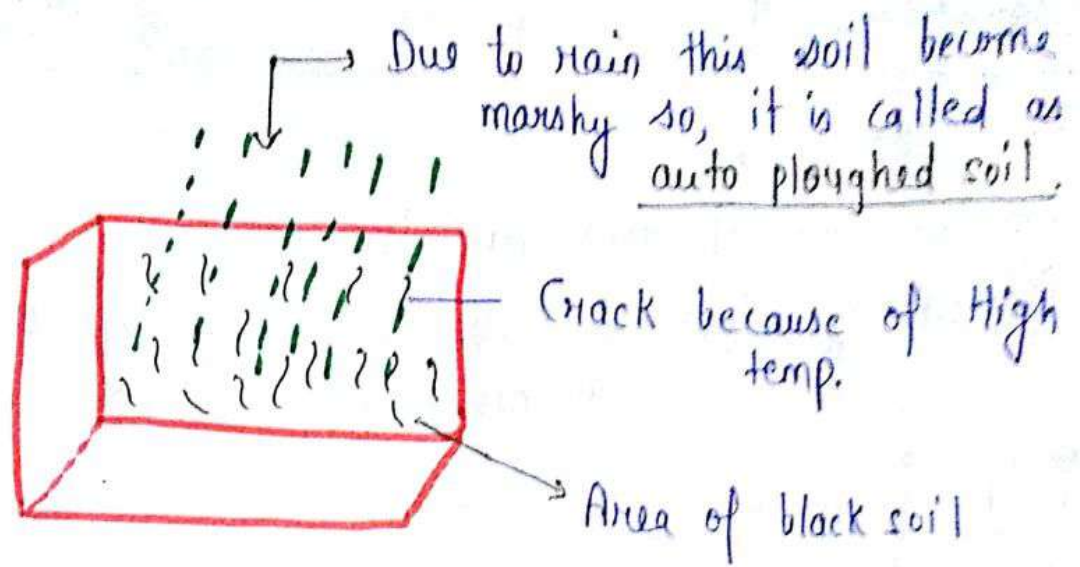 Due to rain this soil become
marshy so, it is called as
auto ploughed soil.
Crack because of High
temp.
Area of black soil